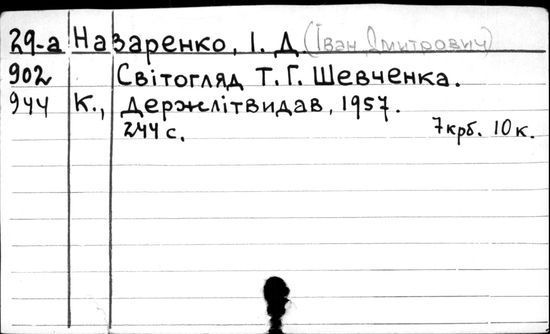 29-а Назаренко, І. Д (Іван Дмитрович)
902 Світогляд Т. Г. Шевченка.
944 К., Держлітвидав, 1957.
244 с. 7крб. 10к.